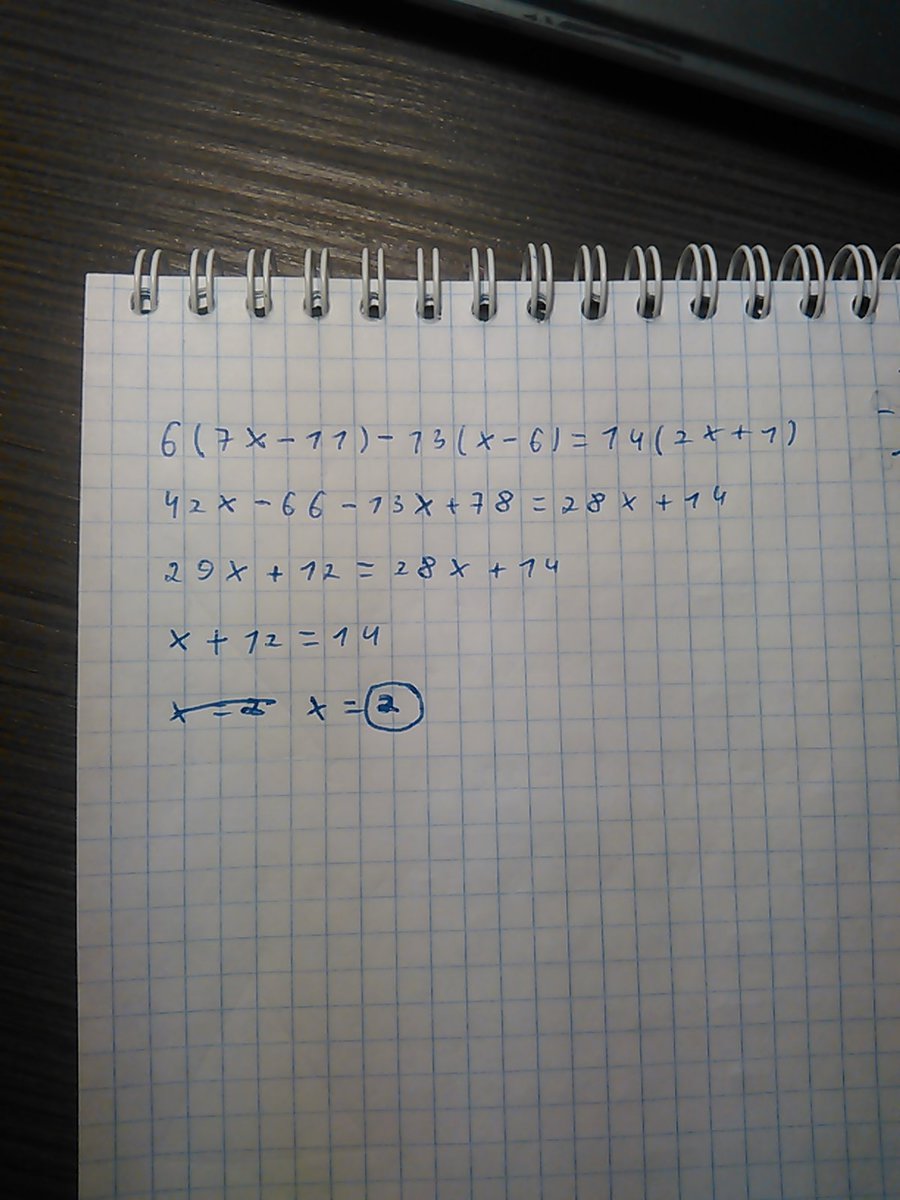 6(7x-11)-13(x-6)=14(2x+1)
42x-66-13x+78=28x+14
29x+12=28x+14
x+12=14
x=2 x=2